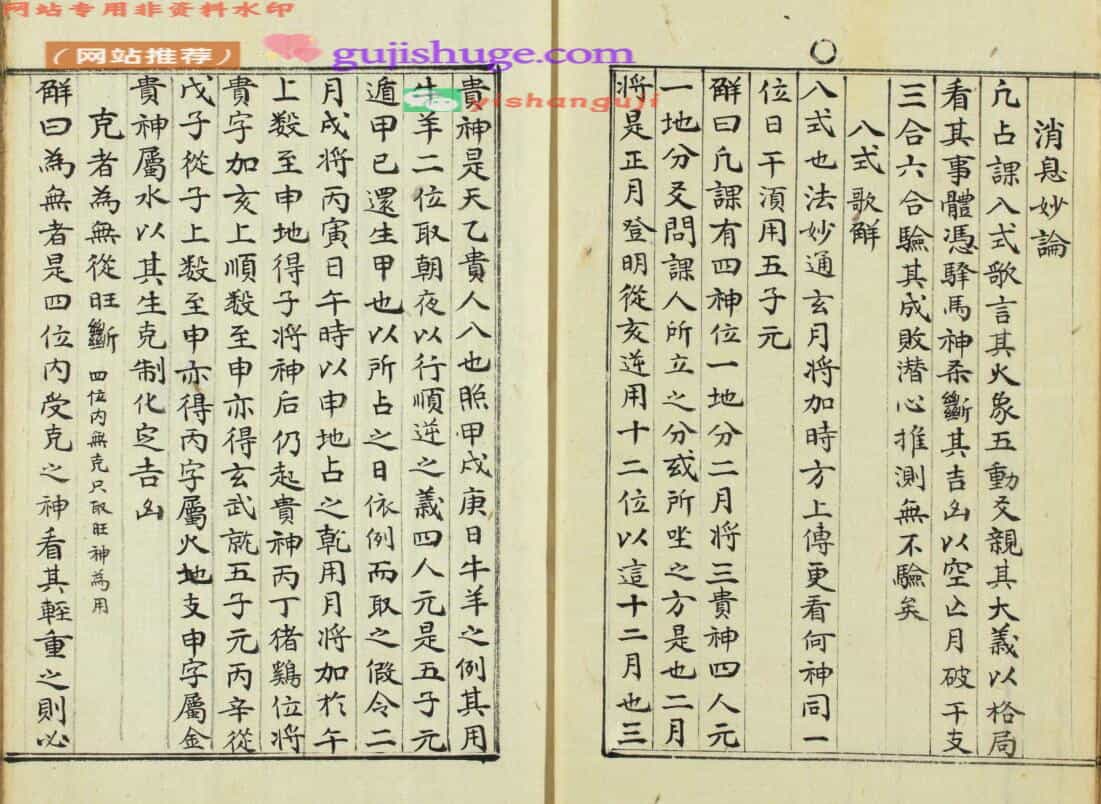 网站专用非资料水印
（网站推荐）
gujishuge.com
yishanguji
消息妙論
凢占課八式歌言其火象五動爻親其大義以格局
看其事體馮驛馬神柔斷其吉凶以空亡月破干支
三合六合驗其成敗潜心推測無不驗矣
八式歌觧
八式也法妙通玄月將加時方上傳更看何神同一
位日干湏用五子元
觧曰凢課有四神位一地分二月將三貴神四人元
一地分爻問課人所立之分或所坐之方是也二月
將是正月登明從亥逆用十二位以這十二月也三
貴神是天乙貴人八也照甲戌庚日牛羊之例其用
牛羊二位取朝夜以行順逆之義四人元是五子元
遁甲已還生甲也以所占之日依例而取之假令二
月戍將丙寅日午時以申地占之乾用月將加於午
上数至申地得子將神后仍起貴神丙丁猪鷄位將
貴字加亥上順数至申亦得玄武就五子元丙辛從
戊子從子上数至申亦得丙字屬火地支申字屬金
貴神屬水以其生克制化㝎吉凶
克者為無從旺斷 四位内無克只取旺神為用
觧曰為無者是四位内受克之神看其輕重之則必